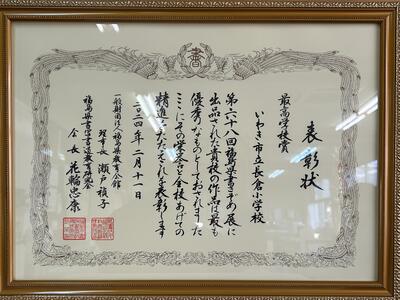 表彰状
最高学校賞
いわき市立長倉小学校
第六十八回福島県書きぞめ展に
出品された貴校の作品は最も
優秀なものとしておされました
ここにその栄誉と全校あげての
精進をたたえこれを表彰します
二〇二四年二月十一日
一般財団法人福島県教育会館
理事長 瀬戸禎子
福島県書写書道教育研究会
会長 花輪忠康